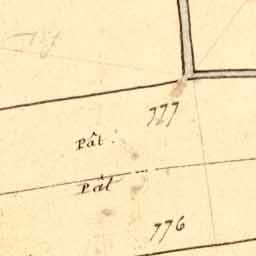 777
Pât.
Pât
776